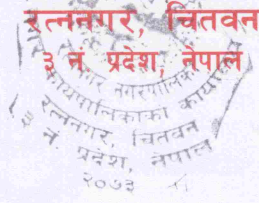 रत्ननगर, चितवन
३ नं. प्रदेश, नेपाल
नगरपालिका
कार्यपालिकाको कार्यालय
रत्ननगर, चितवन
३ नं. प्रदेश, नेपाल
२०७३